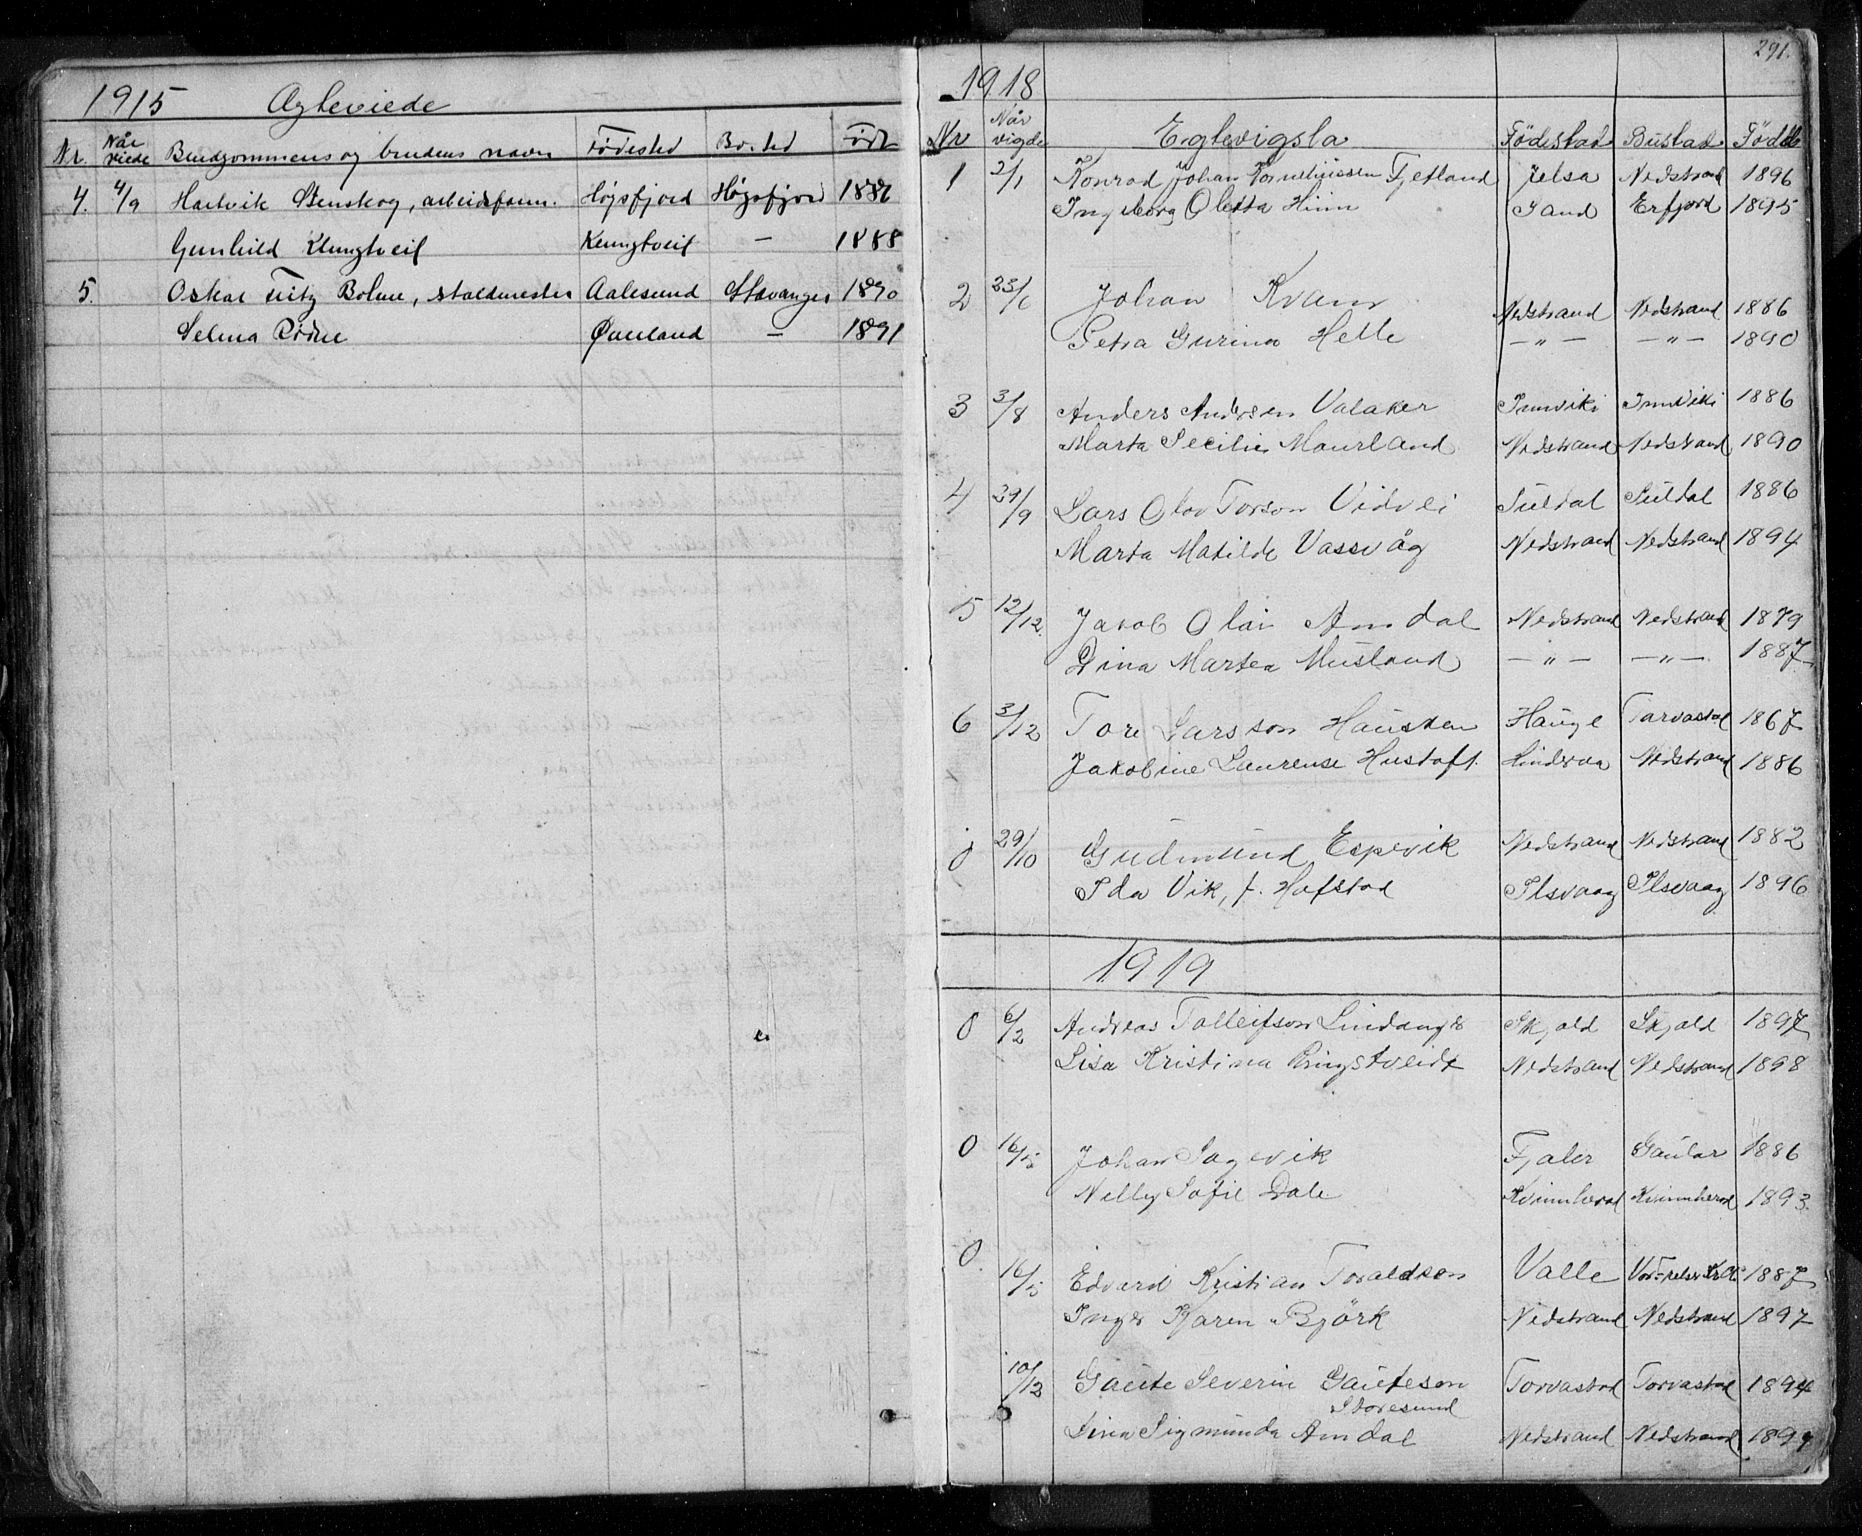 1915 Ægteviede
Nr. Når viede Brudgommens og brudens navn Fødested Bosted Født
4. 4/9 Hartvik Stenskog, arbeidsform. Høgsfjord Høgsfjord 1886
Gunhild Klungtveit Klungtveit — 1888
5. Oskar Fritz Bolme, staldmester Aalesund Stavanger 1890
Selma Rødne Ølensland — 1891
291.
1918
Nr Når vigde Egtevigsla Födestad Bustad Född
1 2/1 Konrad Johan Korneliussen Fjetland Jelsa Nedstrand 1896
Ingeborg Oletta Hiim Sand Erfjord 1895
2 23/6 Johan Kvam Nedstrand Nedstrand 1886
Petra Gurina Helle — " — — " — 1890
3 3/8 Anders Andersen Valaker Innviki Innviki 1886
Marta Secilie Maurland Nedstrand Nedstrand 1890
4 29/9 Lars Olav Torson Vidvei Suldal Suldal 1886
Marta Matilde Vassvåg Nedstrand Nedstrand 1894
5 12/12 Jakob Olai Amdal Nedstrand Nedstrand 1879
Dina Martea Musland — " — — " — 1887
6 3/12 Tore Larsson Hausken Hauge Torvastad 1867
Jakobine Laurense Hustoft Hinderaa Nedstrand 1886
0 29/10 Gudmund Espevik Nedstrand Nedstrand 1882
Ida Vik, f. Hofstad Ilsvaag Ilsvaag 1896
1919
0 6/2 Andreas Tolleifson Lindanger Skjold Skjold 1897
Lisa Kristina Ringstveidt Nedstrand Nedstrand 1898
0 16/5 Johan Sagevik Fjaler Gaular 1886
Nelly Sofie Dale Kvinnherad Kvinnherad 1893
0 16/5 Edvard Kristian Toraldson Valle 1887
Inger Karen Björk Nedstrand Nedstrand 1897
10/12 Gaute Severin Gauteson Torvastad Torvastad 1894
Storesund
Dina Sigmunda Amdal Nedstrand Nedstrand 1899